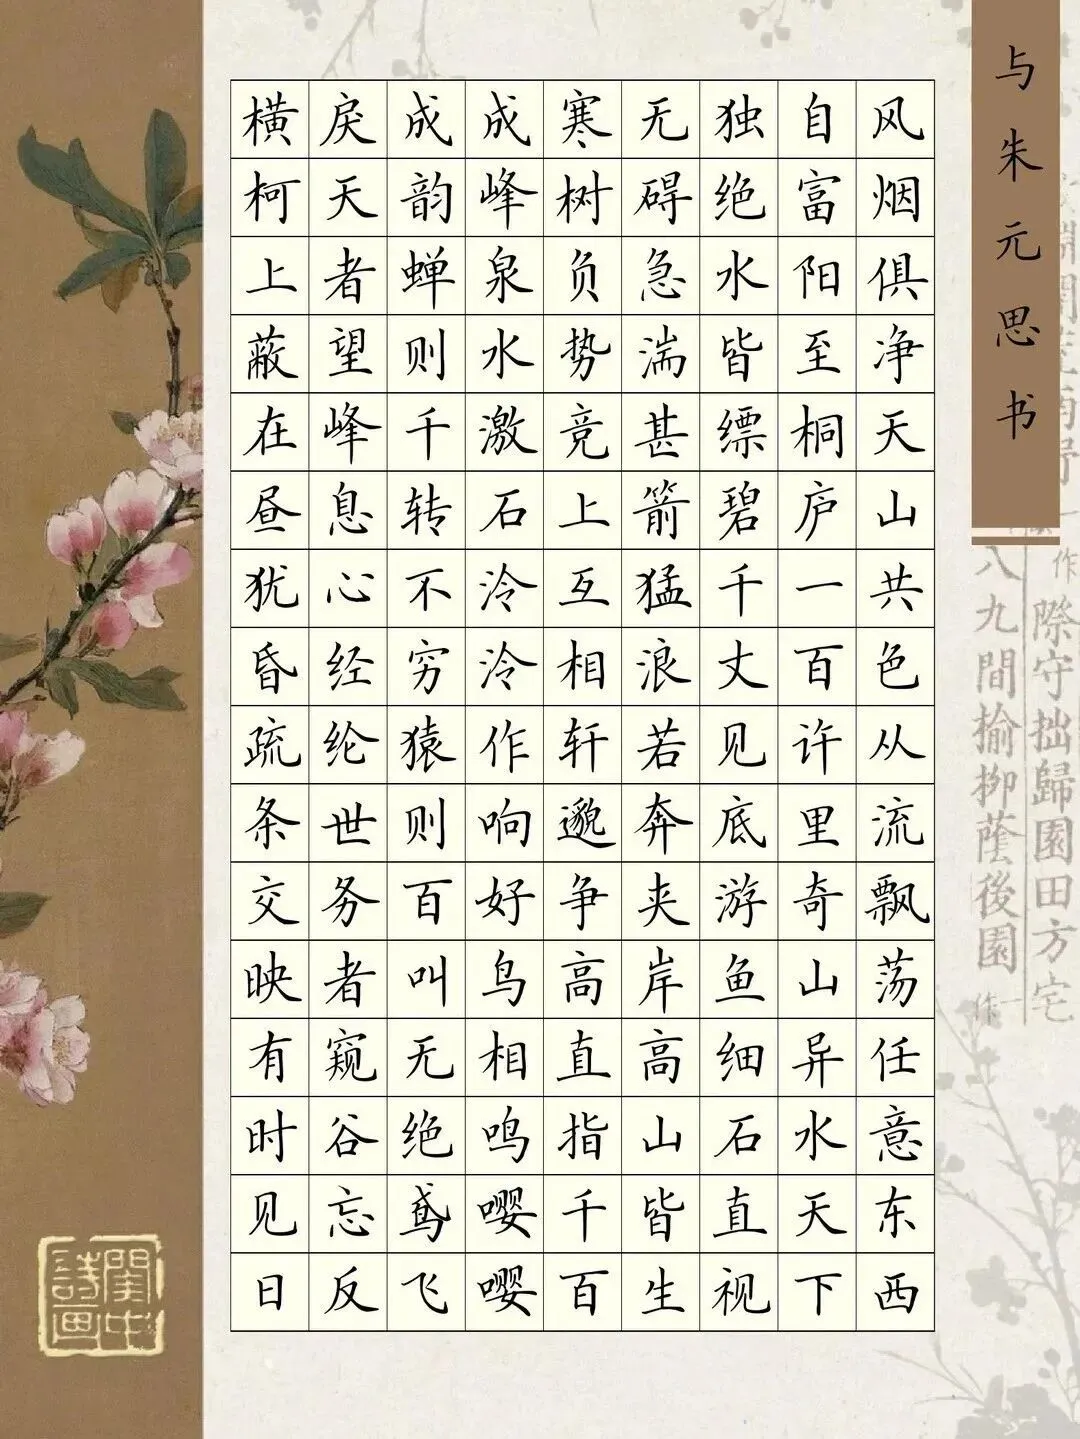 与朱元思书
风烟俱净天山共色从流飘荡任意东西
自富阳至桐庐一百许里奇山异水天下
独绝水皆缥碧千丈见底游鱼细石直视
无碍急湍甚箭猛浪若奔夹岸高山皆生
寒树负势竞上互相轩邈争高直指千百
成峰泉水激石泠泠作响好鸟相鸣嘤嘤
成韵蝉则千转不穷猿则百叫无绝鸢飞
戾天者望峰息心经纶世务者窥谷忘反
横柯上蔽在昼犹昏疏条交映有时见日
作
際守拙歸園田方宅
八九間榆柳蔭後園
作